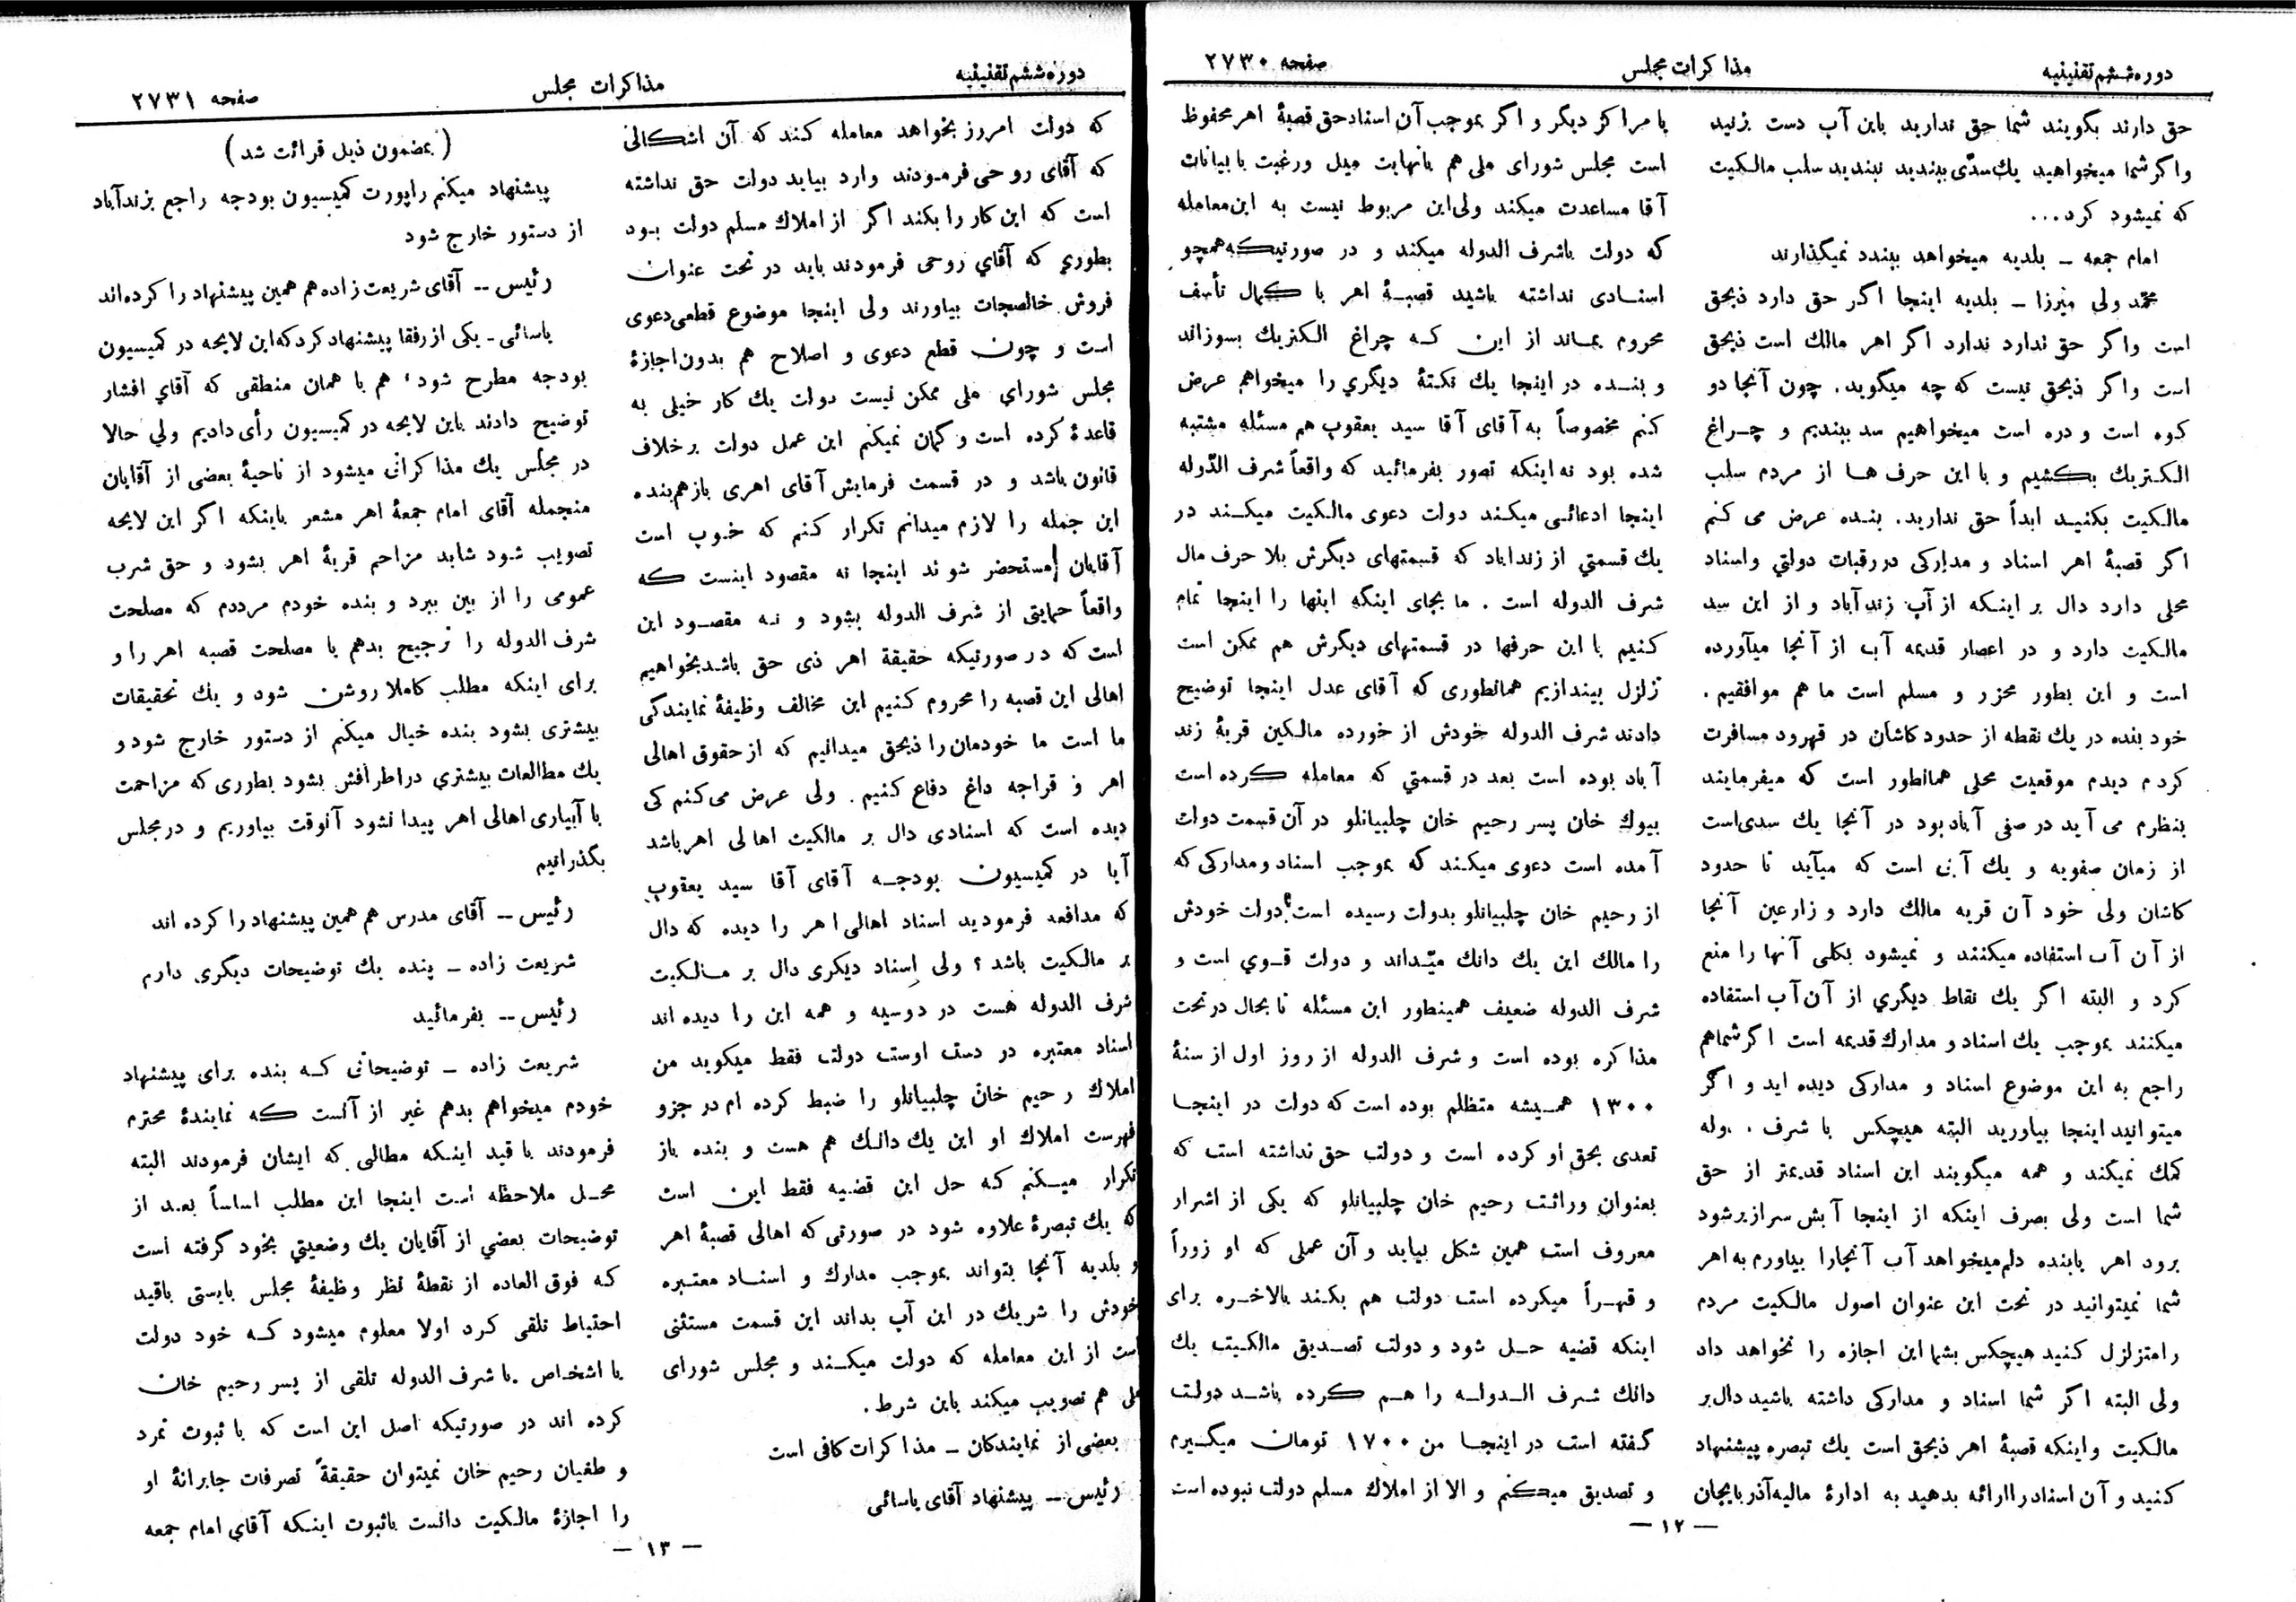 دوره ششم تقنینیه
مذاکرات مجلس
صفحه ۲۷۳۰
حق دارند بگویند شما حق ندارید باین آب دست بزنید
واگر شما میخواهید یك سدّی ببندید نبندید سلب مالکیت
که نمیشود کرد...
امام جمعه ــ بلدیه میخواهد ببندد نمیگذارند
محمد ولی میرزا ــ بلدیه اینجا اگر حق دارد ذیحق
است واگر حق ندارد ندارد اگر اهر مالك است ذیحق
است واگر ذیحق نیست که چه میگوید. چون آنجا دو
کوه است و دره است میخواهیم سد ببندیم و چـراغ
الکتریك بکشیم و با این حرف هـا از مردم سلب
مالکیت بکنیـد ابداً حق ندارید. بنـده عرض می کنم
اگر قصبۀ اهر اسناد و مدارکی در رقبات دولتي واسناد
محلی دارد دال بر اینـکه از آب زند آباد و از این سد
مالکیت دارد و در اعصار قدیمه آب از آنجا میآورده
است و این بطور محرز و مسلم است ما هم موافقیم.
خود بنده در یك نقطه از حدود کاشان در قهرود مسافرت
کردم دیدم موقعیت محلی همانطور است که میفرمایند
بنظرم می آید در صفی آباد بود در آنجا یك سدی است
از زمان صفویه و یك آبی است که میآید تا حدود
کاشان ولی خود آن قریه مالك دارد و زارعین آنجا
از آن آب استفاده میکنند و نمیشود بکلی آنها را منع
کرد و البته اگر یك نقاط دیگري از آن آب استفاده
میکنند بموجب یك اسناد و مدارك قدیمه است اگر شماهم
راجع به این موضوع اسناد و مدارکی دیده اید و اگر
میتوانید اینجا بیاورید البته هیچکس با شرف . .وله
کمك نمیکند و همه میگویند این اسناد قدیمتر از حق
شما است ولی بصرف اینکه از اینجا آبش سرازیر شود
برود اهر یابنده دلم میخواهد آب آنجارا بیاورم به اهر
شما نمیتوانید در تحت این عنوان اصول مالکیت مردم
رامتزلزل کنید هیچکس بشما این اجازه را نخواهد داد
ولی البته اگر شما اسناد و مدارکی داشته باشید دال بر
مالکیت واینکه قصبۀ اهر ذیحق است یك تبصره پیشنهاد
کنید و آن اسناد را ارائه بدهید به ادارۀ مالیه آذربایجان
یا مراکز دیگر و اگر بموجب آن اسناد حق قصبۀ اهر محفوظ
است مجلس شورای ملی هم بانهایت میل ورغبت با بیانات
آقا مساعدت میکند ولی این مربوط نیست به این معامله
که دولت باشرف الدوله میکند و در صورتیکه همچو
اسنـادی نداشته باشید قصبـۀ اهر با کمال تأسف
محروم بماند از این کـه چراغ الکتریك بسوزاند
و بنـده در اینجا یك نکتۀ دیگري را میخواهم عرض
کنم مخصوصاً به آقای آقا سید یعقوب هم مسئله مشتبه
شده بود نه اینکه تصور بفرمائید که واقعاً شرف الدّوله
اینجا ادعائی میکـند دولت دعوی مالکیت میکـند در
یك قسمتي از زنداباد که قسمتهای دیگرش بلا حرف مال
شرف الدوله است . ما بجای اینکه اینها را اینجا تمام
کنیم با این حرفها در قسمتهای دیگرش هم ممکن است
تزلزل بیندازیم همانطوری که آقای عدل اینجا توضیح
دادند شرف الدوله خودش از خورده مالکین قریۀ زند
آباد بوده است بعد در قسمتي که معامله کرده است
بیوك خان پسر رحیم خان چلبیانلو در آن قسمت دولت
آمده است دعوی میکـند که بموجب اسناد و مدارکی که
از رحیم خان چلبیانلو بدولت رسیده است؟ دولت خودش
را مالك این یك دانك میّداند و دولت قـوي است و
شرف الدوله ضعیف همینطور این مسئله تا بحال درتحت
مذاکره بوده است و شرف الدوله از روز اول از سنۀ
۱۳۰۰ همـیشه متظلم بوده است که دولت در اینجـا
تعدی بحق او کرده است و دولت حق نداشته است که
بعنوان وراثت رحیم خان چلبیانلو که یکی از اشرار
معروف است همین شکل بیاید و آن عملی که او زوراً
و قهـراً میکرده است دولت هم بکند بالاخـره برای
اینکه قضیه حـل شود و دولت تصـدیق مالکیت یك
دانك شرف الـدولـه را هـم کرده باشـد دولـت
گفته است در اینجـا من ۱۷۰۰ تومان میگـیرم
و تصدیق میکنم و الا از املاك مسلم دولت نبوده است
ــ ۱۲ ــ
دوره ششم تقنینیه
مذاکرات مجلس
صفحه ۲۷۳۱
که دولت امروز بخواهد معامله کنـد که آن اشکالی
که آقای روحی فرمـودند وارد بیاید دولت حق نداشته
است که این کار را بکند اگر از املاك مسلم دولت بـود
بطوري که آقاي روحی فرمودند باید در تحت عنوان
فروش خالصجات بیاورند ولی اینجا موضوع قطعی دعوی
است و چون قطع دعوی و اصلاح هم بدون اجازۀ
مجلس شوراي ملی ممکن نیست دولت یك کار خیلی به
قاعدۀ کرده است و گمان نمیکنم این عمل دولت برخلاف
قانون باشد و در قسمت فرمایش آقای اهری بازهم بنده
این جمله را لازم میدانم تکرار کنم که خـوب است
آقایان مستحضر شوند اینجا نه مقصود اینست که
واقعاً حمایتی از شرف الدوله بشود و نـه مقصـود این
است که در صورتیکه حقیقة اهر ذی حق باشد بخواهیم
اهالی این قصبه را محروم کنیم این مخالف وظیفۀ نمایندگی
ما است ما خودمان را ذیحق میدانیم که از حقوق اهالی
اهر و قراجه داغ دفاع کنیم. ولی عرض می کنم کی
دیده است که اسنادی دال بر مالکیت اهالی اهر باشد
آیا در کمیسیون بودجـه آقای آقا سید یعقوب
که مدافعه فرمودید اسناد اهالی اهر را دیده که دال
بر مالکیت باشد ؟ ولی اسناد دیگری دال بر مـالکیت
شرف الدوله هست در دوسیه و همه این را دیده اند
اسناد معتبره در دست اوست دولت فقط میگوید من
املاك رحیم خان چلبیانلو را ضبط کرده ام در جزو
فهرست املاك او این یك دانـك هم هست و بنده باز
تکرار میـکنم کـه حل این قضـیه فقط این است
که یك تبصرۀ علاوه شود در صورتی که اهالی قصبۀ اهر
و بلدیه آنجا بتواند بموجب مدارك و اسنـاد معتـبره
خودش را شریك در این آب بداند این قسمت مستثنی
است از این معامله که دولت میکـند و مجلس شورای
ملی هم تصویب میکند باین شرط.
بعضی از نمایندکان ــ مذاکرات کافی است
رئیس ــ پیشنهاد آقای یاسائی
(بمضمون ذیل قرائت شد)
پیشنهاد میکنم راپورت کمیسیون بودجه راجع بزندآباد
از دستور خارج شود
رئیس ــ آقای شریعت زاده هم همین پیشنهاد را کرده اند
یاسائی ــ یکی از رفقا پیشنهاد کرد که این لایحه در کمیسیون
بودجه مطرح شود، هم با همان منطقی که آقاي افشار
توضیح دادند باین لایحه در کمیسیون رأی دادیم ولي حالا
در مجلس یك مذاکراتی میشود از ناحیۀ بعضی از آقایان
منجمله آقای امام جمعۀ اهر مشعر باینکه اگر این لایحه
تصویب شود شاید مزاحم قریۀ اهر بشود و حق شرب
عمومی را از بین ببرد و بنده خودم مرددم که مصلحت
شرف الدوله را ترجیح بدهم یا مصلحت قصبه اهر را و
برای اینکه مطلب کاملا روشن شود و یك تحقیقات
بیشتری بشود بنده خیال میکنم از دستور خارج شود و
یك مطالعات بیشتري در اطرافش بشود بطوری که مزاحمت
با آبیاری اهالی اهر پیدا نشود آنوقت بیاوریم و در مجلس
بگذرانیم
رئیس ــ آقای مدرس هم همین پیشنهاد را کرده اند
شریعت زاده ــ بنده یك توضیحات دیگری دارم
رئیس ــ بفرمائید
شریعت زاده ــ توضیحاتی کـه بنده برای پیشنهاد
خودم میخواهم بدهم غیر از آنست که نمایندۀ محترم
فرمودند با قید اینـکه مطالبی که ایشان فرمودند البته
محـل ملاحظه است اینجا این مطلب اساساً بعـد از
توضیحات بعضي از آقایان یك وضعیتي بخود گرفته است
کـه فوق العاده از نقطۀ نظر وظیفۀ مجلس بایستی باقید
احتیاط تلقی کرد اولا معلوم میشود کـه خود دولت
یا اشخاص با شرف الدوله تلقی از پسر رحیم خان
کرده اند در صورتیکه اصل این است که با ثبوت تمرد
و طغیان رحیم خان نمیتوان حقیقةً تصرفات جابرانۀ او
را اجازۀ مالکیت دانست باثبوت اینـکه آقاي امام جمعه
ــ ۱۳ ــ